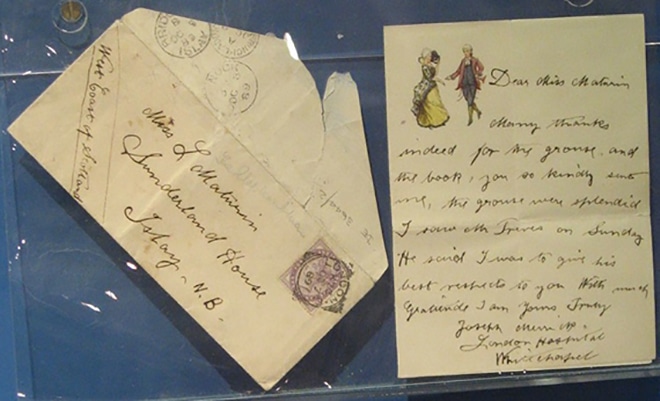 West Coast of Scotland
Miss L Maturin
Sunderland House
Islay - N.B-
LONDON
Dear Miss Maturin
Many thanks
indeed for the grouse, and
the book, you so kindly sent
me, the grouse were splendid
I saw Mr Treves on Sunday
He said I was to give his
best respects to you With much
Gratitude I am Yours Truly
Joseph Merrick-
London Hospital
Whitechapel